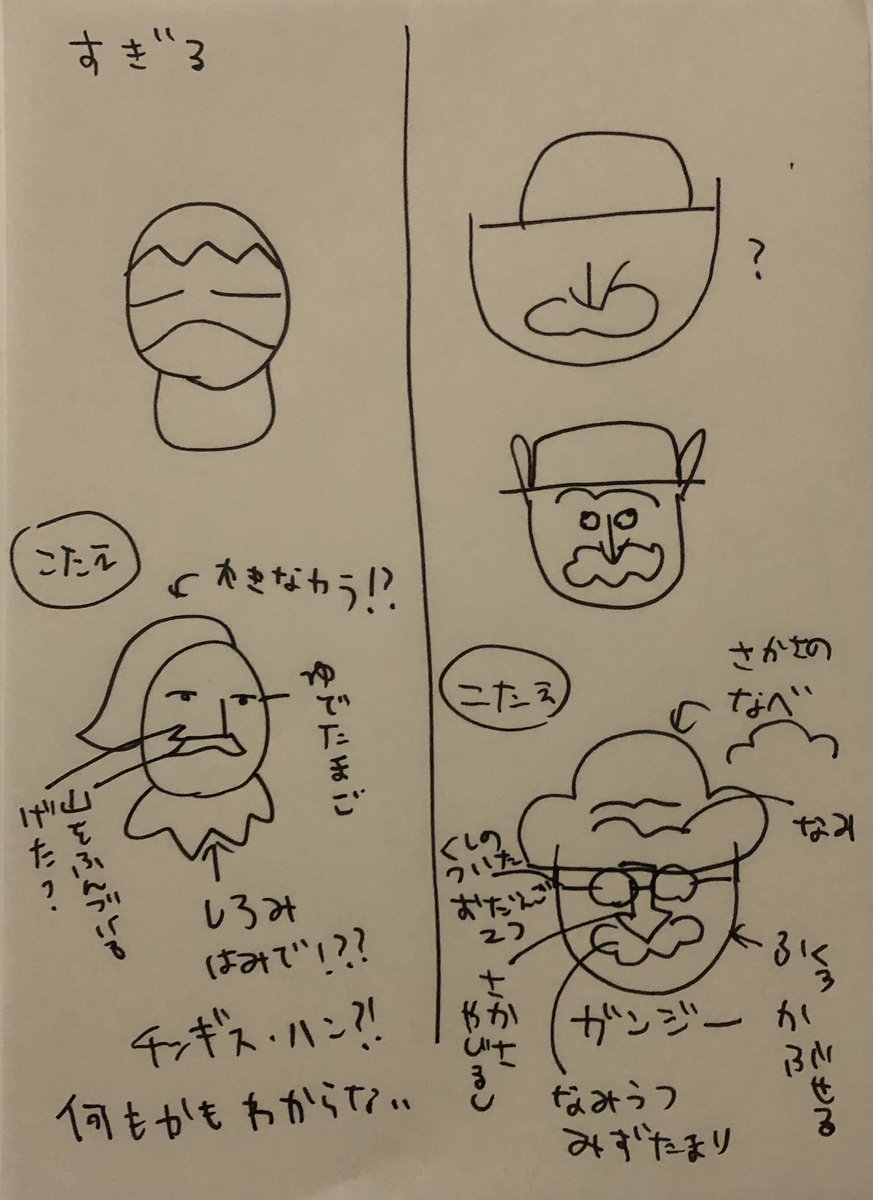 すぎる
こたえ
かきなかう!?
ゆでたまご
山をふんづける
げた?
しろみ
はみで!??
チンギス・ハン?!
何もかもわからない
?
こたえ
さかさの
なべ
なみ
くしの
ついた
おだんご
2つ
さかさ
やじるし
ふくろ
かぶせる
ガンジー
なみうつ
みずたまり